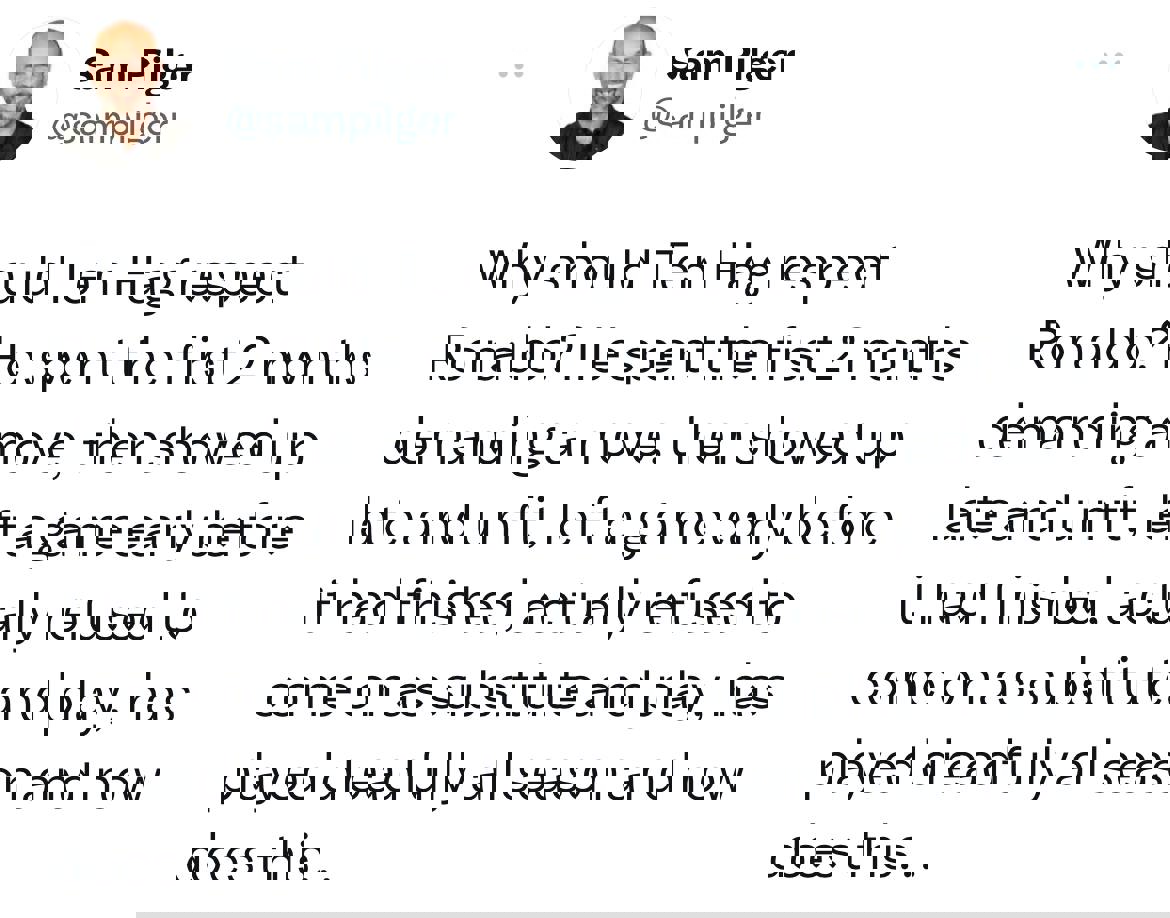 Sam Pilger
@sampilger
Why should Ten Hag respect
Ronaldo? He spent the first 2 months
demanding a move, then showed up
late and unfit, left a game early before
it had finished, actually refused to
come on as substitute and play, has
played dreadfully all season and now
does this.